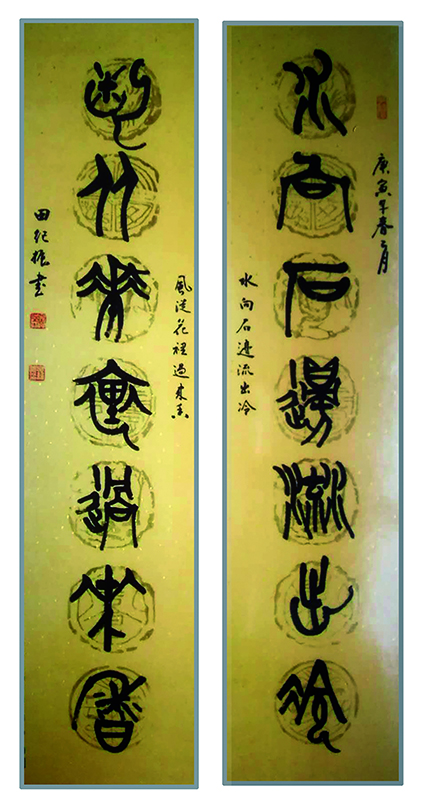 水向石邊流出冷
庚寅年春月
水向石边流出冷
風從花裡過來香
風從花裡過來香
田紀振書